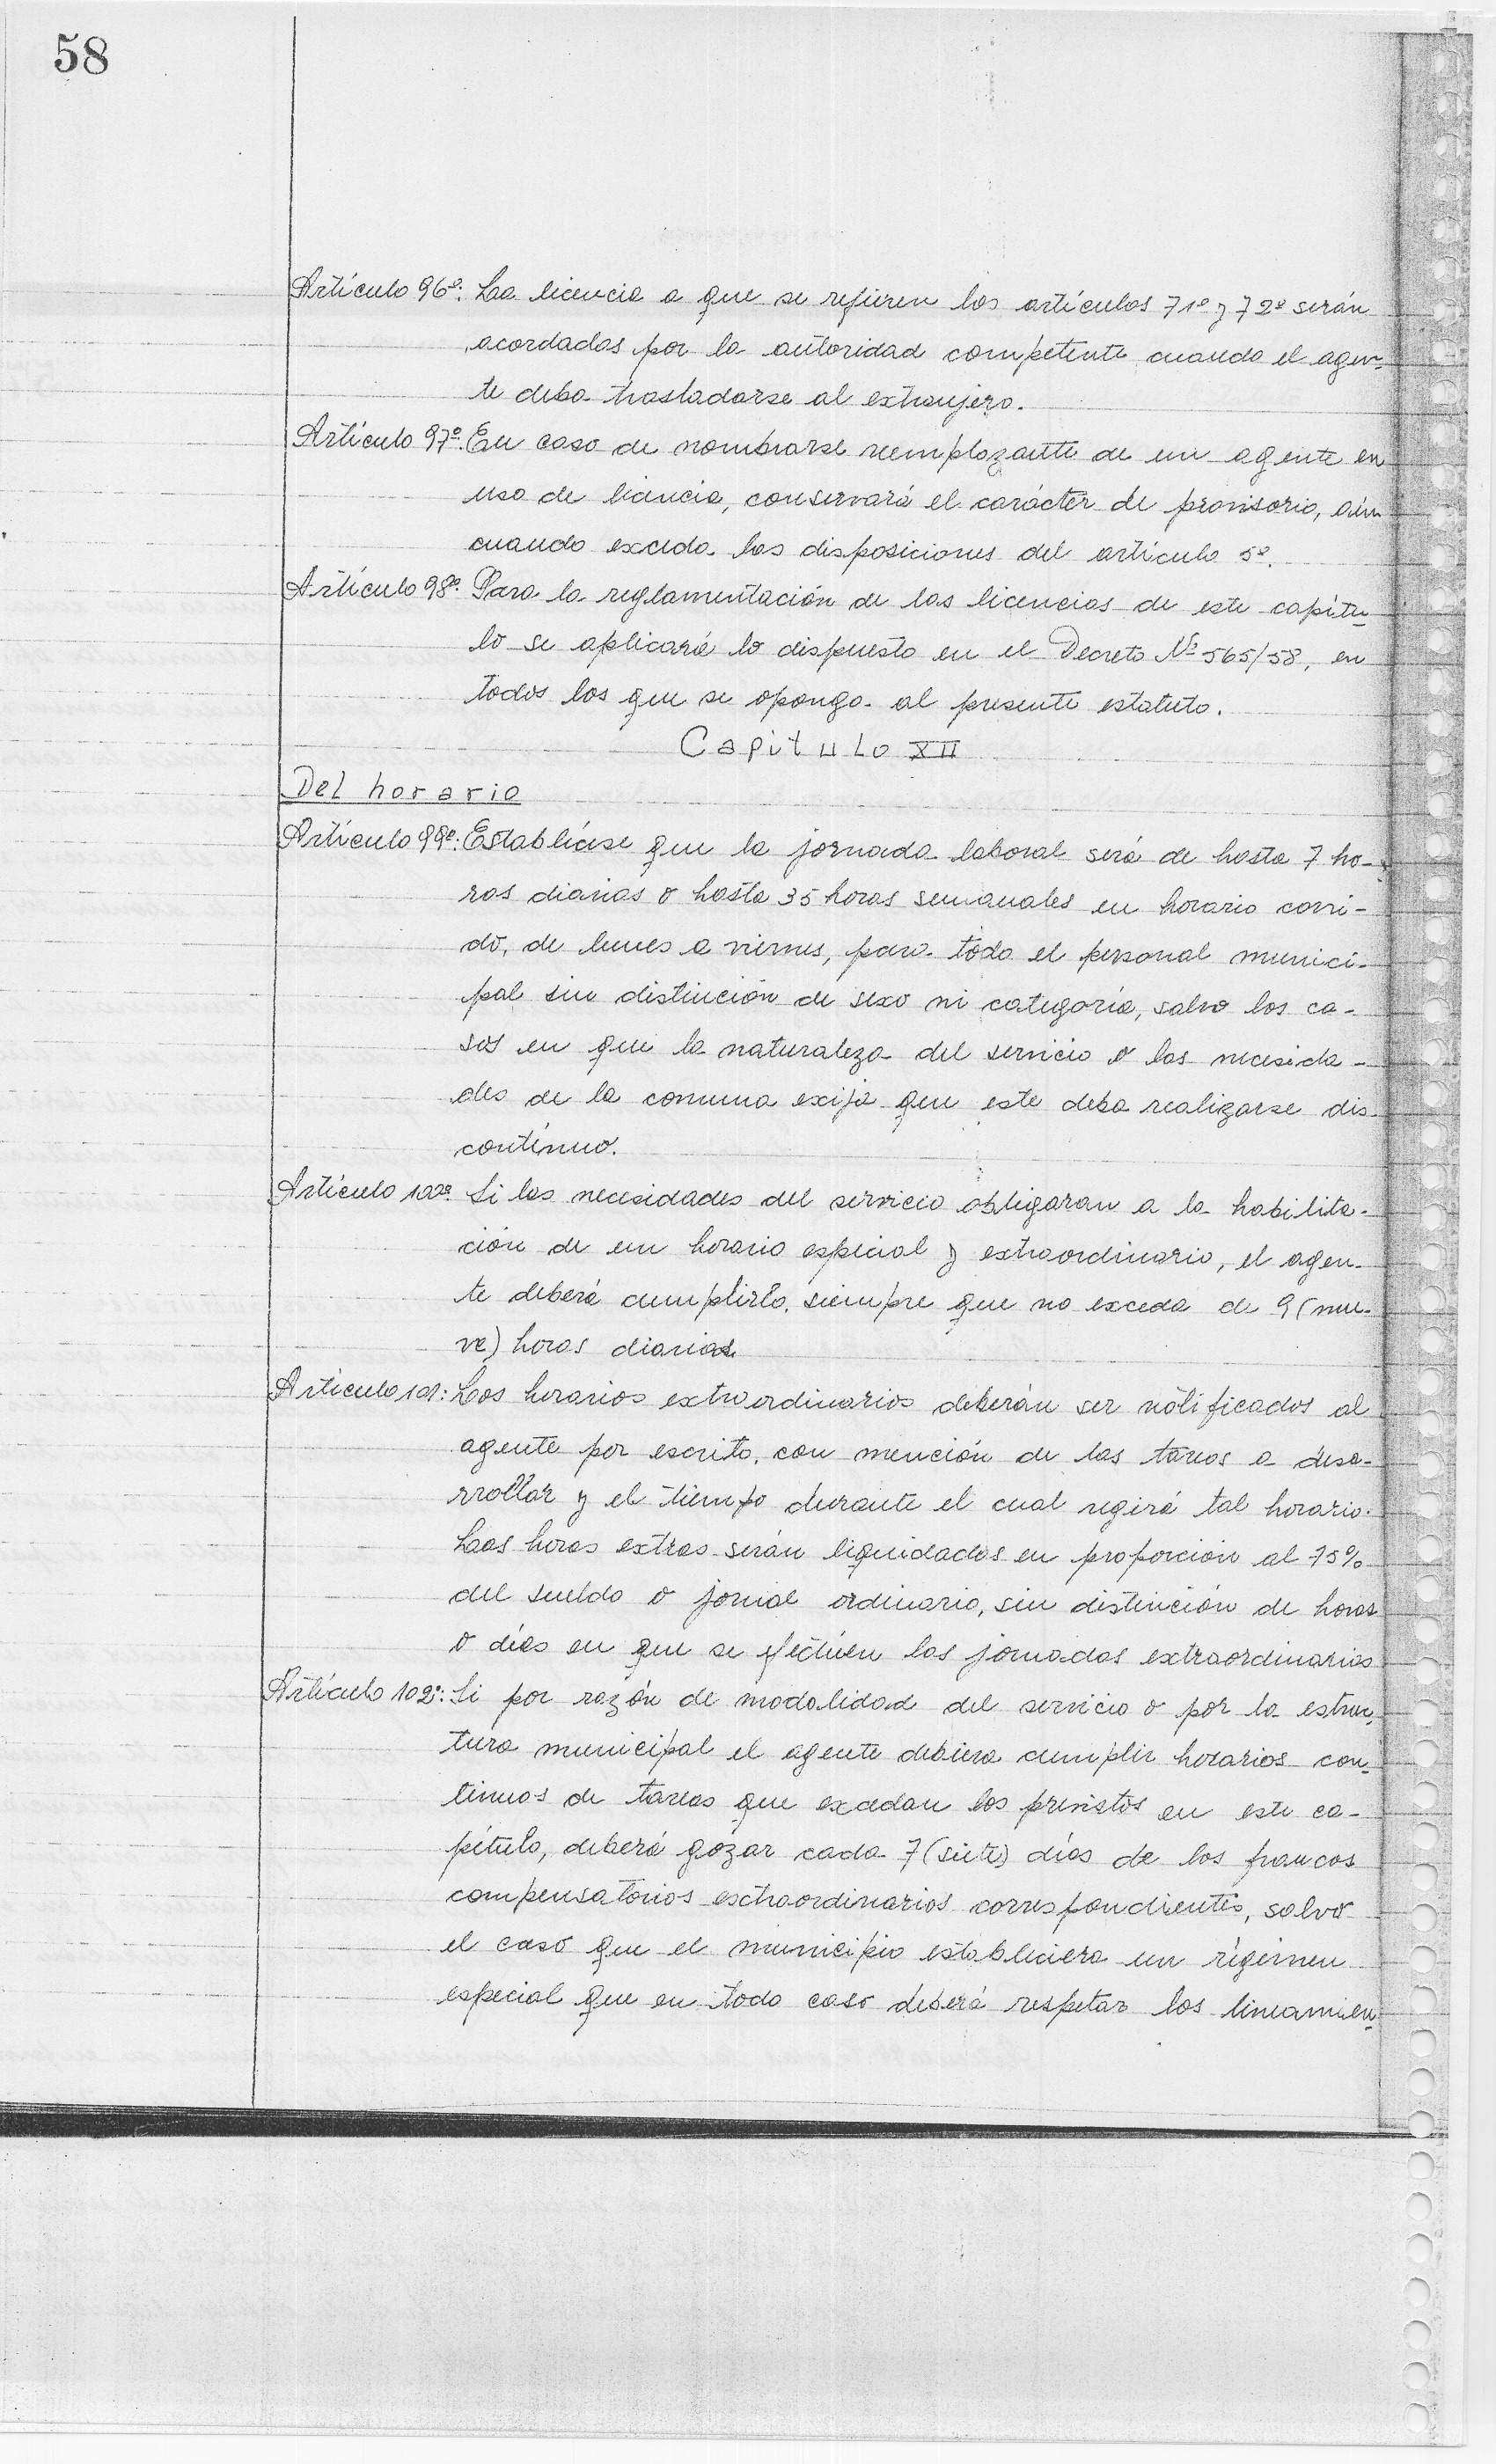 58
Artículo 96º: La licencia a que se refieren los artículos 71º y 72º serán
acordadas por la autoridad competente cuando el agen-
te deba trasladarse al extranjero.
Artículo 97º: En caso de nombrarse reemplazante de un agente en
uso de licencia, conservará el carácter de provisorio, aún
cuando exceda las disposiciones del artículo 5º.
Artículo 98º: Para la reglamentación de las licencias de este capítu-
lo se aplicará lo dispuesto en el Decreto Nº 565/58, en
todos los que se oponga al presente estatuto.
Capitulo XII
Del horario
Artículo 99º: Establécese que la jornada laboral será de hasta 7 ho-
ras diarias o hasta 35 horas semanales en horario corri-
do, de lunes a viernes, para todo el personal munici-
pal sin distinción de sexo ni categoría, salvo los ca-
sos en que la naturaleza del servicio o las necesida-
des de la comuna exija que este deba realizarse dis-
contínuo.
Artículo 100º: Si las necesidades del servicio obligaran a la habilita-
ción de un horario especial y extraordinario, el agen-
te deberá cumplirlo, siempre que no exceda de 9 (nue-
ve) horas diarias
Artículo 101: Los horarios extraordinarios deberán ser notificados al
agente por escrito, con mención de las tareas a desa-
rrollar y el tiempo durante el cual regirá tal horario.
Las horas extras serán liquidadas en proporción al 75%
del sueldo o jornal ordinario, sin distinción de horas
o días en que se efectúen las jornadas extraordinarias
Artículo 102º: Si por razón de modalidad del servicio o por la estruc-
tura municipal el agente debiera cumplir horarios con-
tinuos de tareas que excedan los previstos en este ca-
pítulo, deberá gozar cada 7 (siete) días de los francos
compensatorios extraordinarios correspondientes, salvo
el caso que el municipio estableciera un régimen
especial que en todo caso deberá respetar los lineamien-